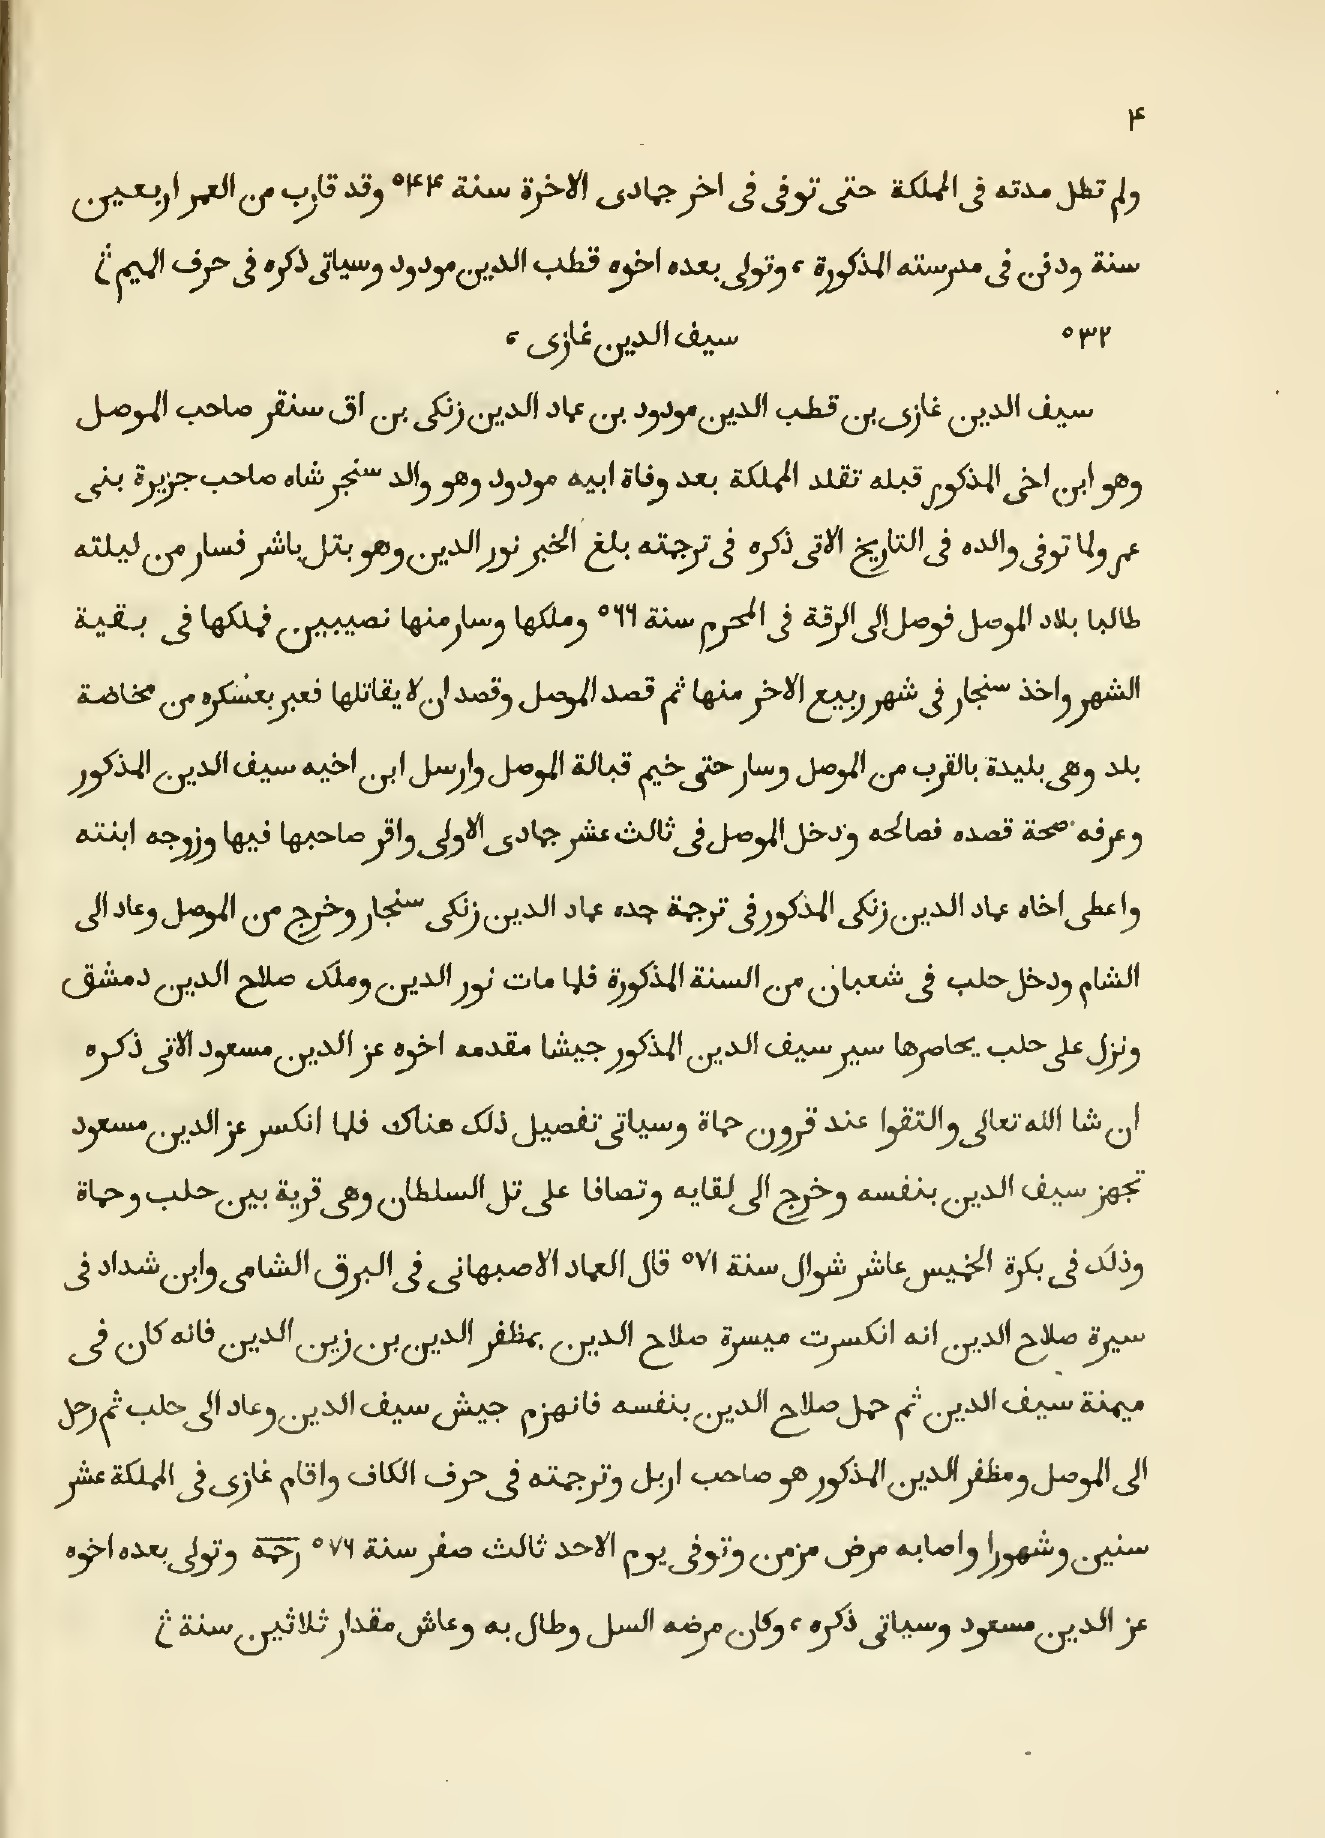 ۴
ولم تطل مدته فى المملكة حتى توفى فى اخر جمادى الاخرة سنة ۵۴۴ وقد قارب من العمر اربعين
سنة ودفن فى مدرسته المذكورة ، وتولى بعده اخوه قطب الدين مودود وسياتى ذكره فى حرف الميم
۵۳۲ سيف الدين غازى ،
سيف الدين غازى بن قطب الدين مودود بن عماد الدين زنكى بن اق سنقر صاحب الموصل
وهو ابن اخى المذكور قبله تقلد المملكة بعد وفاة ابيه مودود وهو والد سنجر شاه صاحب جزيرة بنى
عمر ولما توفى والده فى التاريخ الاتى ذكره فى ترجمته بلغ الخبر نور الدين وهو بتل باشر فسار من ليلته
طالبا بلاد الموصل فوصل الى الرقة فى المحرم سنة ۵۶۶ وملكها وسار منها نصيبين فملكها فى بقية
الشهر واخذ سنجار فى شهر ربيع الاخر منها ثم قصد الموصل وقصد ان لا يقاتلها فعبر بعسكره من مخاضة
بلد وهى بليدة بالقرب من الموصل وسار حتى خيم قبالة الموصل وارسل ابن اخيه سيف الدين المذكور
وعرفه صحة قصده فصالحه ودخل الموصل فى ثالث عشر جمادى الاولى واقر صاحبها فيها وزوجه ابنته
واعطى اخاه عماد الدين زنكى المذكور فى ترجمة جده عماد الدين زنكى سنجار وخرج من الموصل وعاد الى
الشام ودخل حلب فى شعبان من السنة المذكورة فلما مات نور الدين وملك صلاح الدين دمشق
ونزل على حلب يحاصرها سير سيف الدين المذكور جيشا مقدمه اخوه عز الدين مسعود الاتى ذكره
ان شا الله تعالى والتقوا عند قرون حماة وسياتى تفصيل ذلك هناك فلما انكسر عز الدين مسعود
تجهز سيف الدين بنفسه وخرج الى لقايه وتصافا على تل السلطان وهى قرية بين حلب وحماة
وذلك فى بكرة الخميس عاشر شوال سنة ۵۷۱ قال العماد الاصبهانى فى البرق الشامى وابن شداد فى
سيرة صلاح الدين انه انكسرت ميسرة صلاح الدين بمظفر الدين بن زين الدين فانه كان فى
ميمنة سيف الدين ثم حمل صلاح الدين بنفسه فانهزم جيش سيف الدين وعاد الى حلب ثم رحل
الى الموصل ومظفر الدين المذكور هو صاحب اربل وترجمته فى حرف الكاف واقام غازى فى المملكة عشر
سنين وشهورا واصابه مرض مزمن وتوفى يوم الاحد ثالث صفر سنة ۵۷۶ رحمه وتولى بعده اخوه
عز الدين مسعود وسياتى ذكره ، وكان مرضه السل وطال به وعاش مقدار ثلاثين سنة